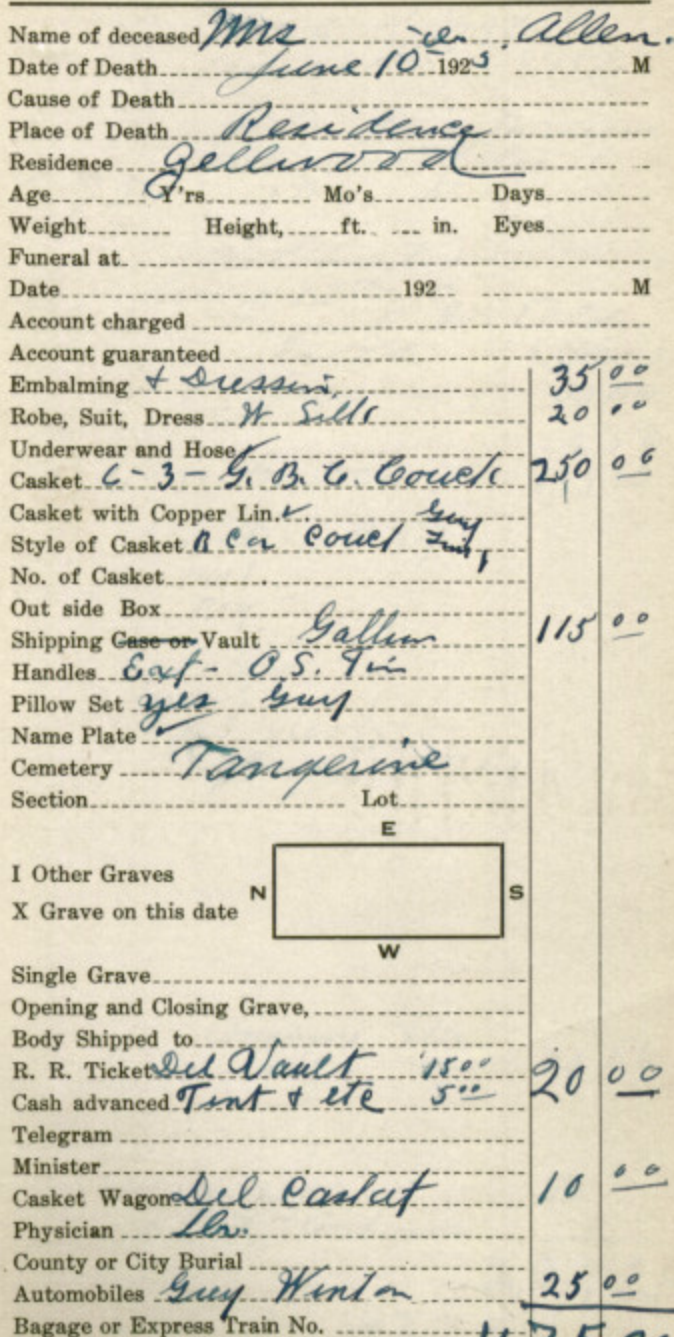 Name of deceased Mrs Allen.
Date of Death June 10 1925 M
Cause of Death
Place of Death Residence
Residence Zellwood
Age Y'rs Mo's Days
Weight Height, ft. in. Eyes
Funeral at
Date 192 M
Account charged
Account guaranteed
Embalming & Dressin 35 00
Robe, Suit, Dress W Silk 20 00
Underwear and Hose ✓
Casket 6-3- G. B. C. Couch 250 00
Casket with Copper Lin. ✓ Grey
Style of Casket Couch
No. of Casket
Out side Box
Shipping Case or Vault 115 00
Handles Ext - O.S.
Pillow Set yes Grey
Name Plate ✓
Cemetery Tangerine
Section Lot
E
I Other Graves
N S
X Grave on this date
W
Single Grave
Opening and Closing Grave,
Body Shipped to
R. R. Ticket Del Vault 15 00 20 00
Cash advanced Tent & etc 5 00
Telegram
Minister
Casket Wagon Del Casket 10 00
Physician
County or City Burial
Automobiles Grey Winton 25 00
Bagage or Express Train No.